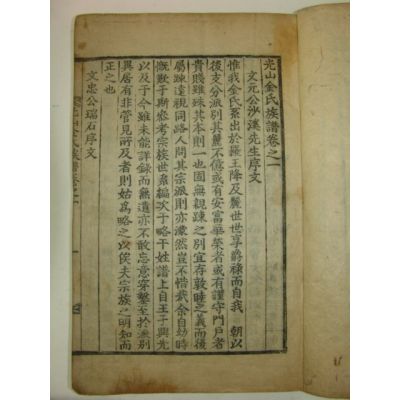 光山金氏族譜卷之一
文元公沙溪先生序文
惟我金氏系出於羅王降及麗世世享爵祿而自我 朝以
後支分派別其麗不億或有安富榮者或有謹守門戶者
貴賤雖殊其本則一也固無親踈之別宜存敦睦之義而後
屬踈遠視同路人問其宗派則亦濛然豈不惜哉余自幼時
慨歎于斯廢考宗族世系編次于略干姓譜上自王子興光
以及于今雖未能詳錄而無遺亦不敢忘意穿鑿至於派別
異居有非管見所及者則姑爲略之以俟夫宗族之明知而
正之也
文忠公瑞石序文
光山金氏族譜卷之一